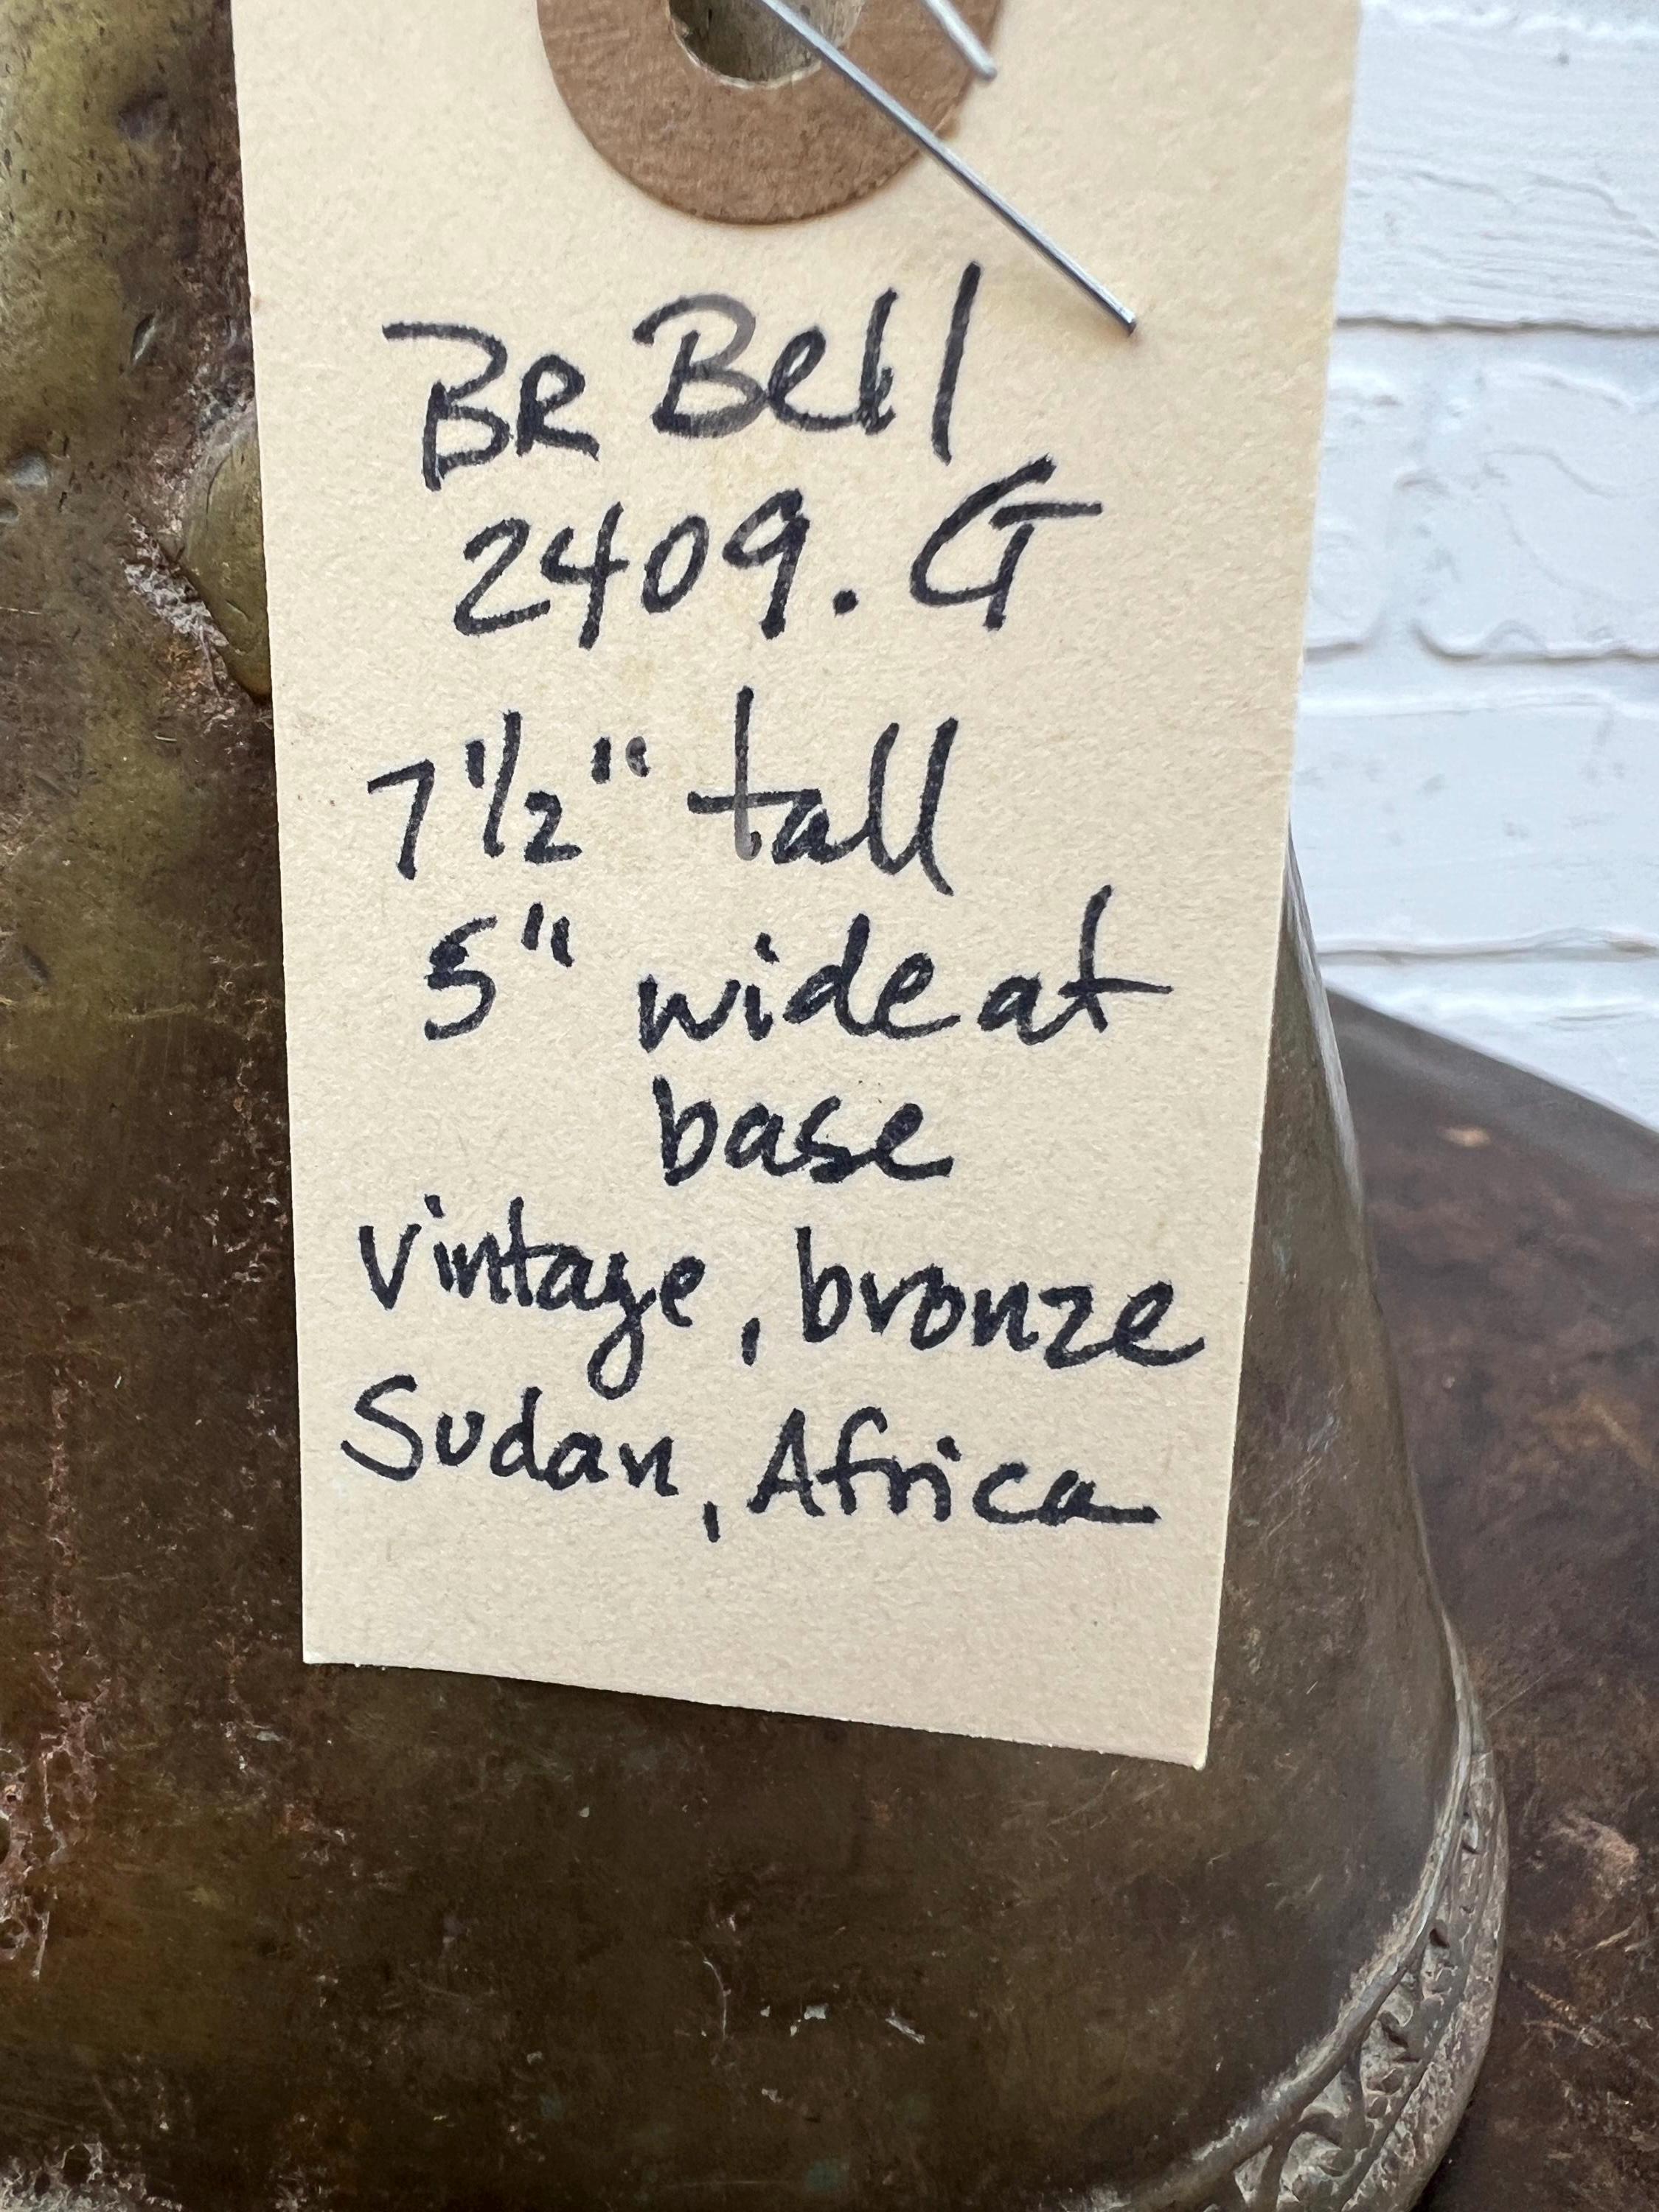 BR Bell
2409.G
7 1/2" tall
5" wide at
base
Vintage, bronze
Sudan, Africa